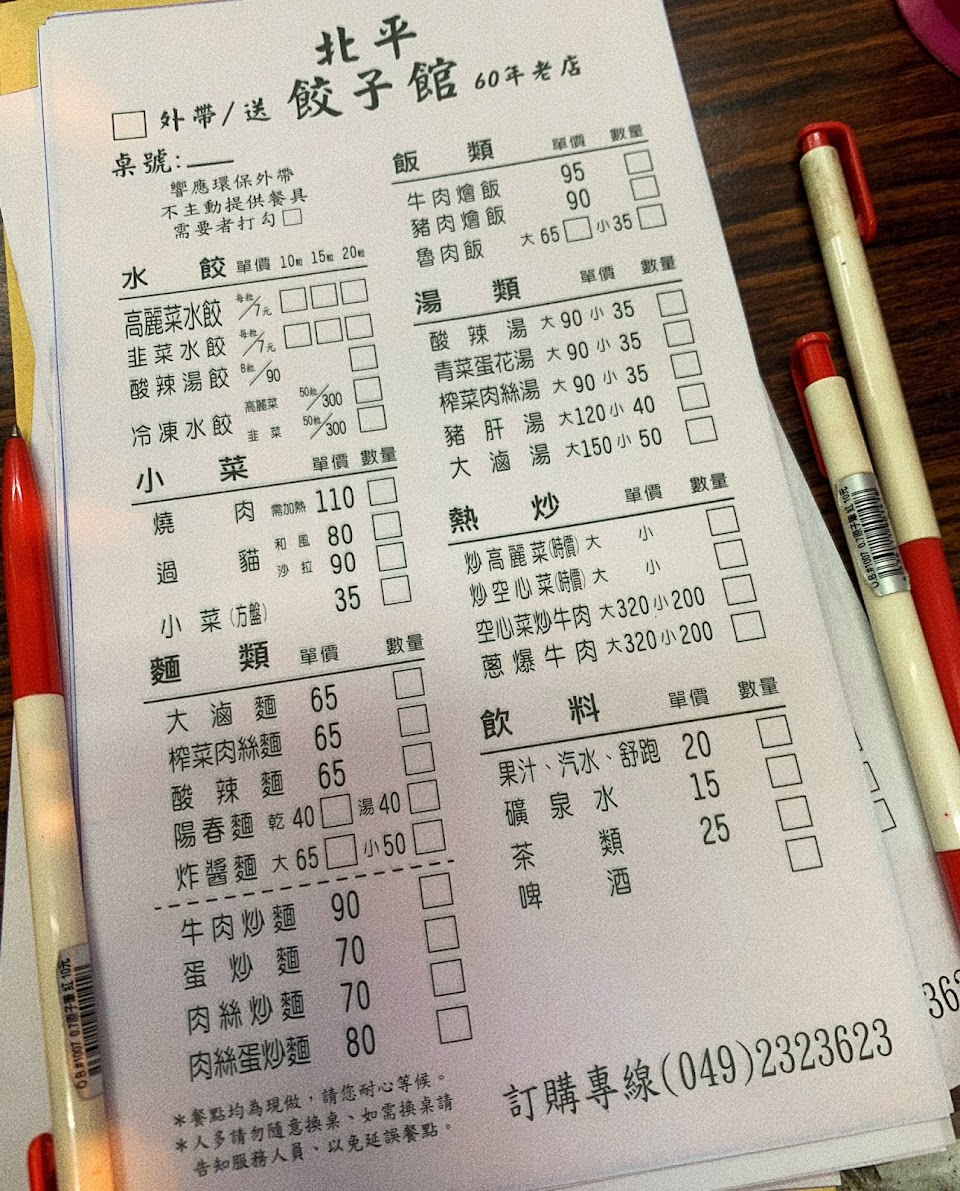 北平
餃子館 60年老店
□外帶/送
桌號:
響應環保外帶
不主動提供餐具
需要者打勾□
水餃 單價 10粒 15粒 20粒
高麗菜水餃 每粒/7元 □□□
韭菜水餃 每粒/7元 □□□
酸辣湯餃 8粒/90 □
冷凍水餃 高麗菜 50粒/300 □
韭菜 50粒/300 □
小菜 單價 數量
燒肉 需加熱 110 □
過貓 和風 80 □
沙拉 90 □
小菜(方盤) 35 □
麵類 單價 數量
大滷麵 65 □
榨菜肉絲麵 65 □
酸辣麵 65 □
陽春麵 乾40 □ 湯40 □
炸醬麵 大65 □ 小50 □
牛肉炒麵 90 □
蛋炒麵 70 □
肉絲炒麵 70 □
肉絲蛋炒麵 80 □
*餐點均為現做,請您耐心等候。
*人多請勿隨意換桌、如需換桌請
告知服務人員、以免延誤餐點。
飯類 單價 數量
牛肉燴飯 95 □
豬肉燴飯 90 □
魯肉飯 大65 □ 小35 □
湯類 單價 數量
酸辣湯 大90 小35 □
青菜蛋花湯 大90 小35 □
榨菜肉絲湯 大90 小35 □
豬肝湯 大120 小40 □
大滷湯 大150 小50 □
熱炒 單價 數量
炒高麗菜(時價) 大 小 □
炒空心菜(時價) 大 小 □
空心菜炒牛肉 大320 小200 □
蔥爆牛肉 大320 小200 □
飲料 單價 數量
果汁、汽水、舒跑 20 □
礦泉水 15 □
茶類 25 □
啤酒 □
訂購專線(049)2323623
OB#1007 0.7原子筆 紅 10元
OB#1007 0.7原子筆 紅 10元